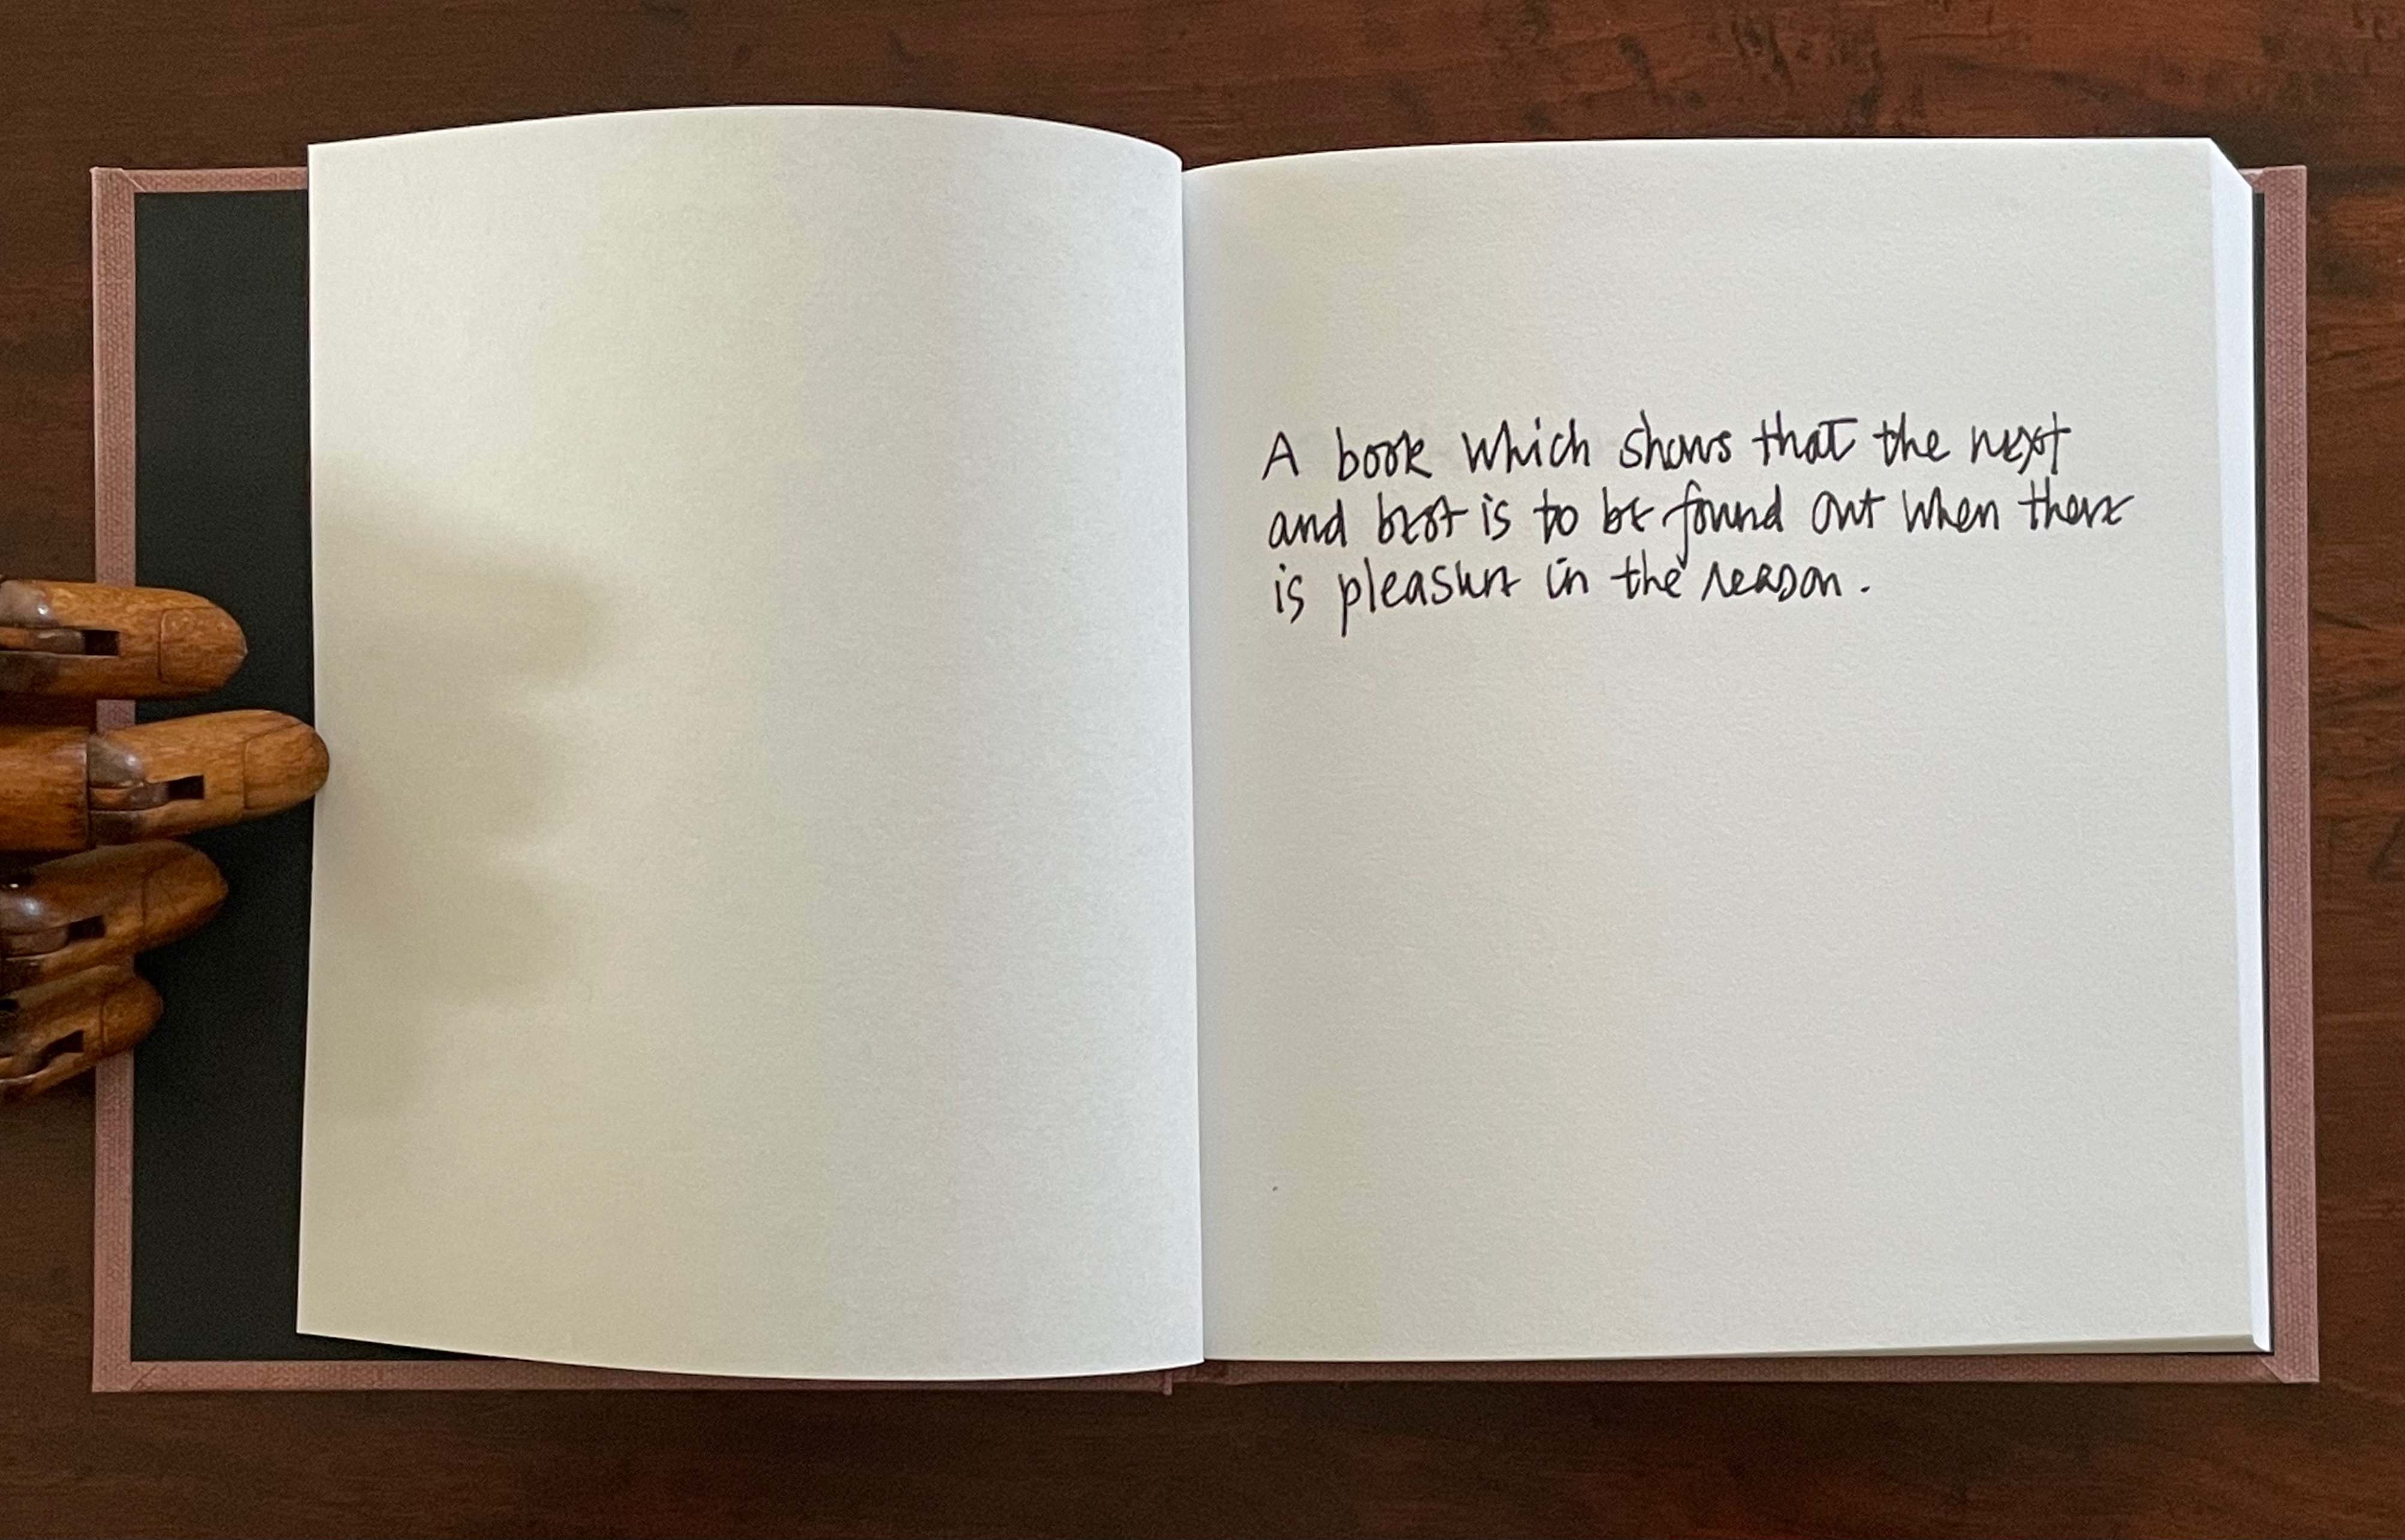 A book which shows that the next
and best is to be found out when there
is pleasure in the reason.